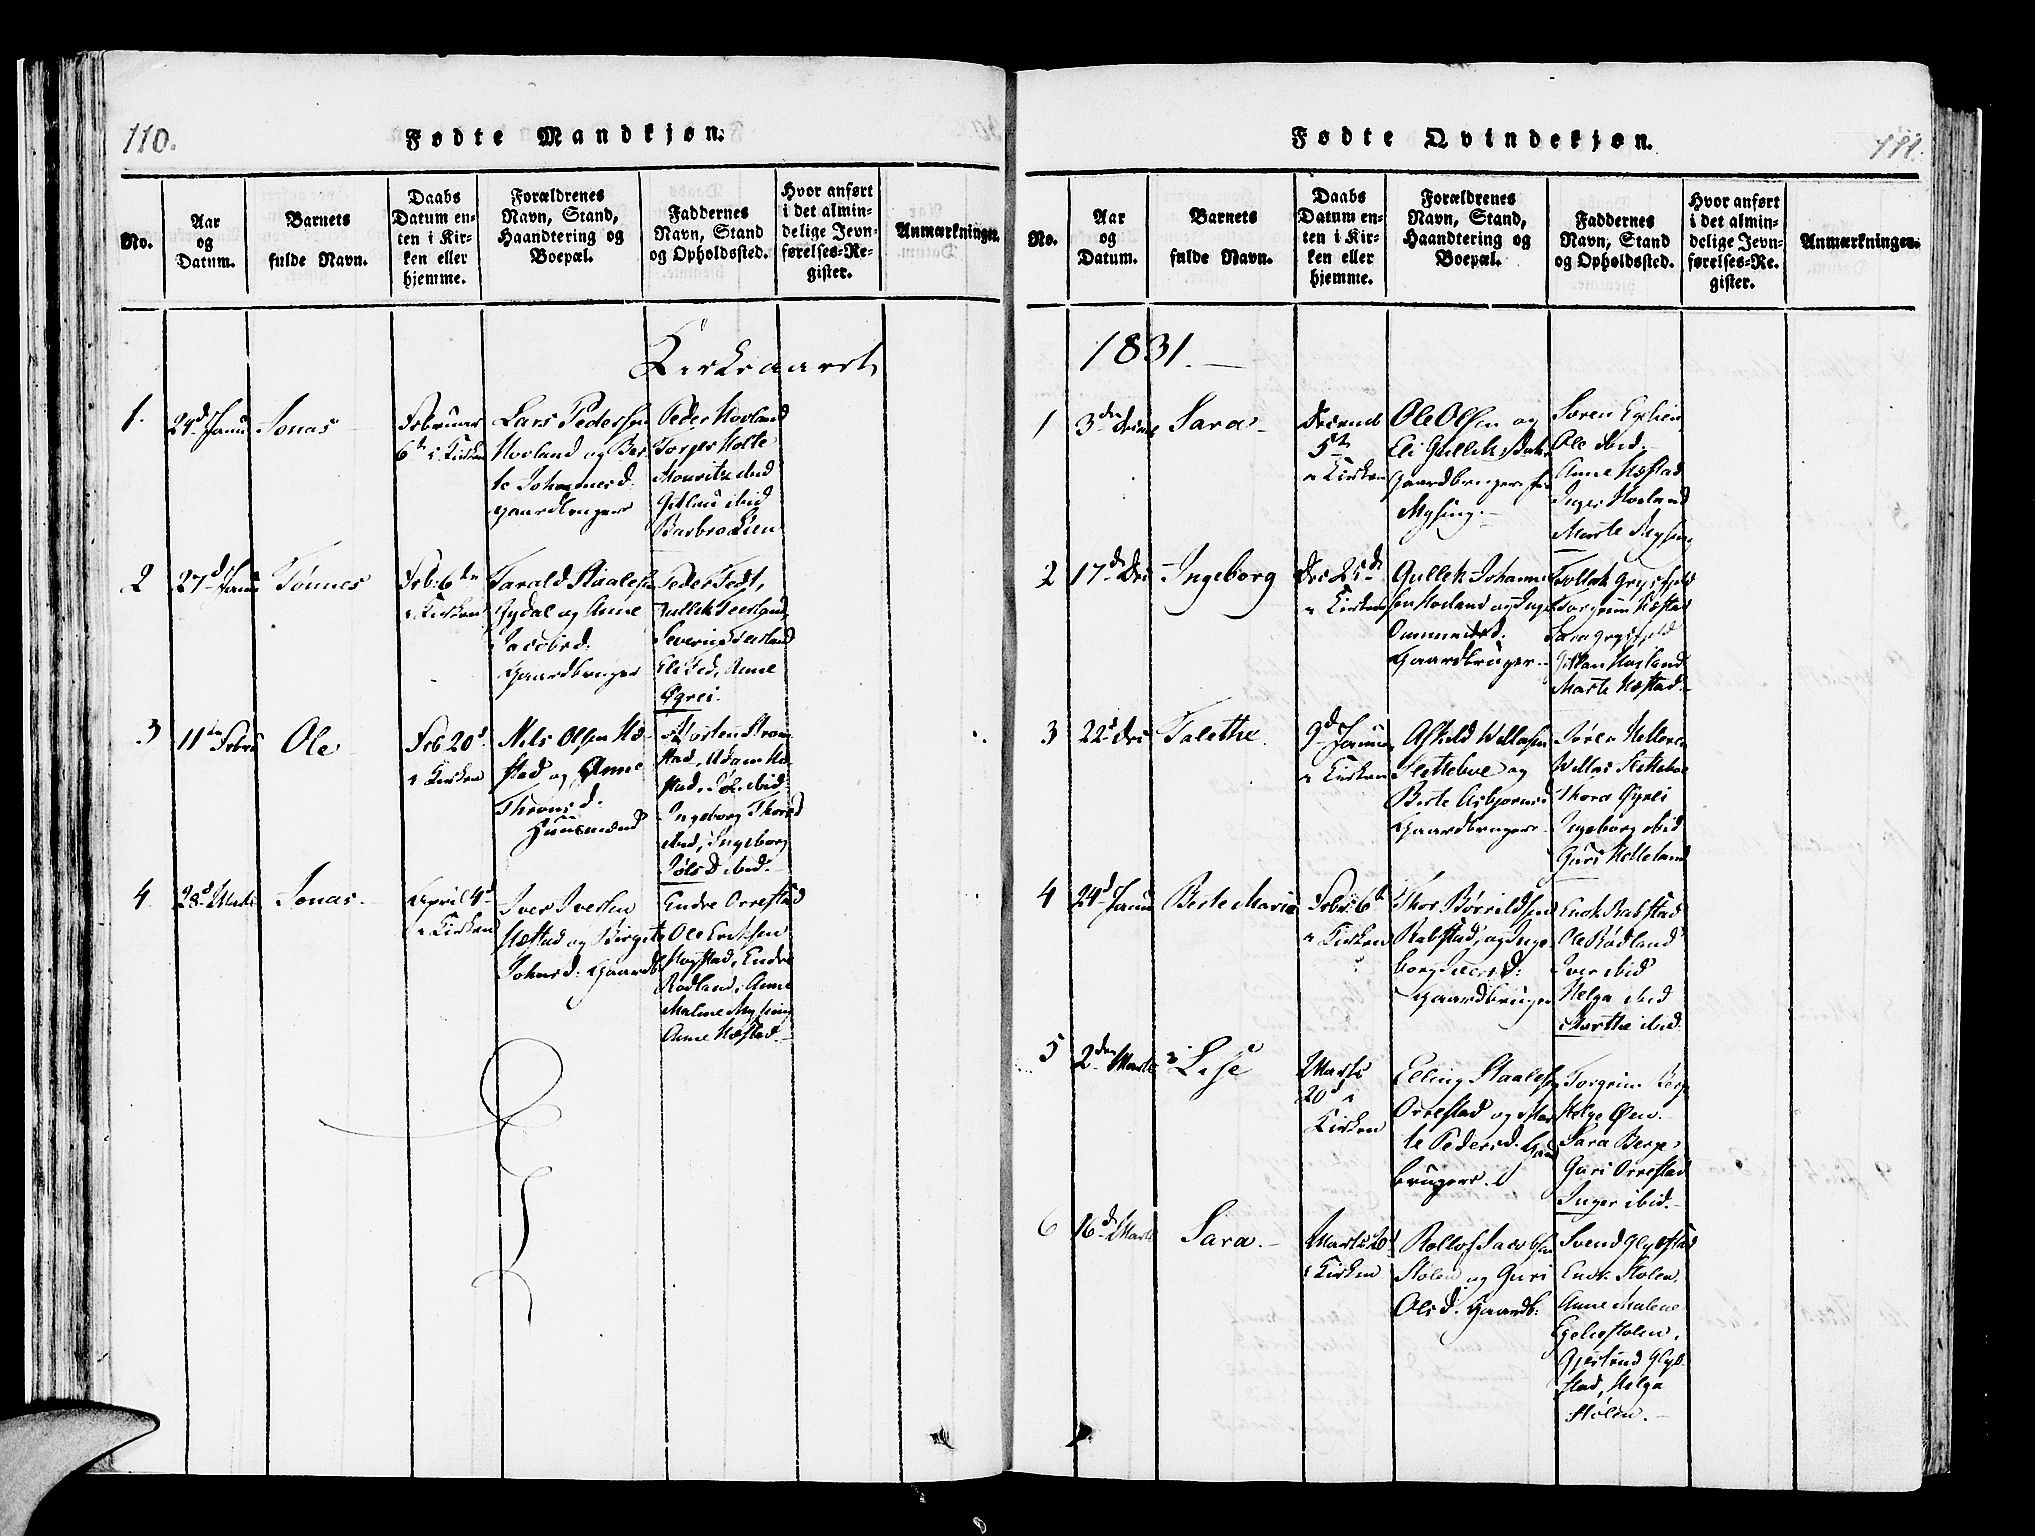 110.
Fødte Mandkjøn.
No.
Aar
og
Datum.
Barnets
fulde Navn.
Daabs
Datum en-
ten i Kir-
ken eller
hjemme.
Forældrenes
Navn, Stand,
Haandtering og
Boepæl.
Faddernes
Navn, Stand
og Opholdssted.
Hvor anført
i det almin-
delige Jevn-
førelses-Re-
gister.
Anmærkninger.
Kirkeaaret
1.
24d Janu
Jonas
Februar
6te i Kirken
Lars Pedersen
Hovland og Ber
te Johannesd.
Gaardbrugere
Peder Hovland
Torger Holte
Mouritz ibid
ibid
2
27d Janu
Tønnes
Feb: 6te
i Kirken
Tarald Staalesen
Gydal og Anne
Jacobsd.
Gaardbruger
Peder Fedt,
Gullek Teerland
Severin Teerland
Eli Fed, Anne
Øgrei.
3
11te Febru
Ole
Feb 20d
i Kirken
Nils Olsen Hæ
stad og Anne
Thronsd.
Huusmænd
stad, Adam Hæ
stad, ibid
Ingeborg
ibid, Ingeborg
ibid.
4
28d Marti
Jonas
April 4d
i Kirken
Iver Iversen
Hæstad og Birgite
Johnsd: Gaardb
Endre Orrestad
Ole Eriksen
Endre
Rodland, Anne
Malene Mysing
Anne Hæstad
Fødte Qvindekjøn.
111.
No.
Aar
og
Datum.
Barnets
fulde Navn.
Daabs
Datum en-
ten i Kir-
ken eller
hjemme.
Forældrenes
Navn, Stand,
Haandtering og
Boepæl.
Faddernes
Navn, Stand
og Opholdssted.
Hvor anført
i det almin-
delige Jevn-
førelses-Re-
gister.
Anmærkninger.
1831.
1
3de
Sara
Decemb
5te
i Kirken
Ole Olsen og
Eli
Gaardbrugere
Mysing.
Søren Egelien
Ole ibid.
Anne Hæstad
Inger Hovland
Marte
2
17de Dec
Ingeborg
Dec 25de
i Kirken
Gullek Johanne
sen Hovland og Inge
Ommundsd.
Gaardbruger
Tollak Grysfjeld
Torgrim Hæstad
Sara Grysfjeld
Hovland
Marte Hæstad
3
22d Dec
Talethe
9d Janua
i Kirken
Asfeld Willasen
Sletteboe og
Berte Asbjørnsd
Gaardbrugere
Søren Helleren
Willas Sletteboe
Thora Øgrei
Ingeborg ibid
Guri Helleland
4
24d Janu
Berte Marie
Febr: 6te
i Kirken
Thor Børrildsen
Rabstad, og Inge
borg Iversd:
Gaardbruger
Enok Rabstad
Ole Rødland
Iver ibid
Helga ibid
Marthe ibid
5
2den Marti
Lise
Marti
20d i
Kirken
Elling Staalesen
Orrestad og Mar
te Pedersd. Gaard
brugere.
Torgrim Berge
Helge Øen.
Sara Berge
Guri Orrestad
Inger ibid.
6
16d Marti
Sara.
Marti 20d
i Kirken
Rollof Jacobsen
Stolen og Guri
Olsd. Gaardb:
Svend Glybstad
Enok Stolen
Anne Malene
Egeliestolen,
Gjertrud Glyb
stad, Helga
Stolen.